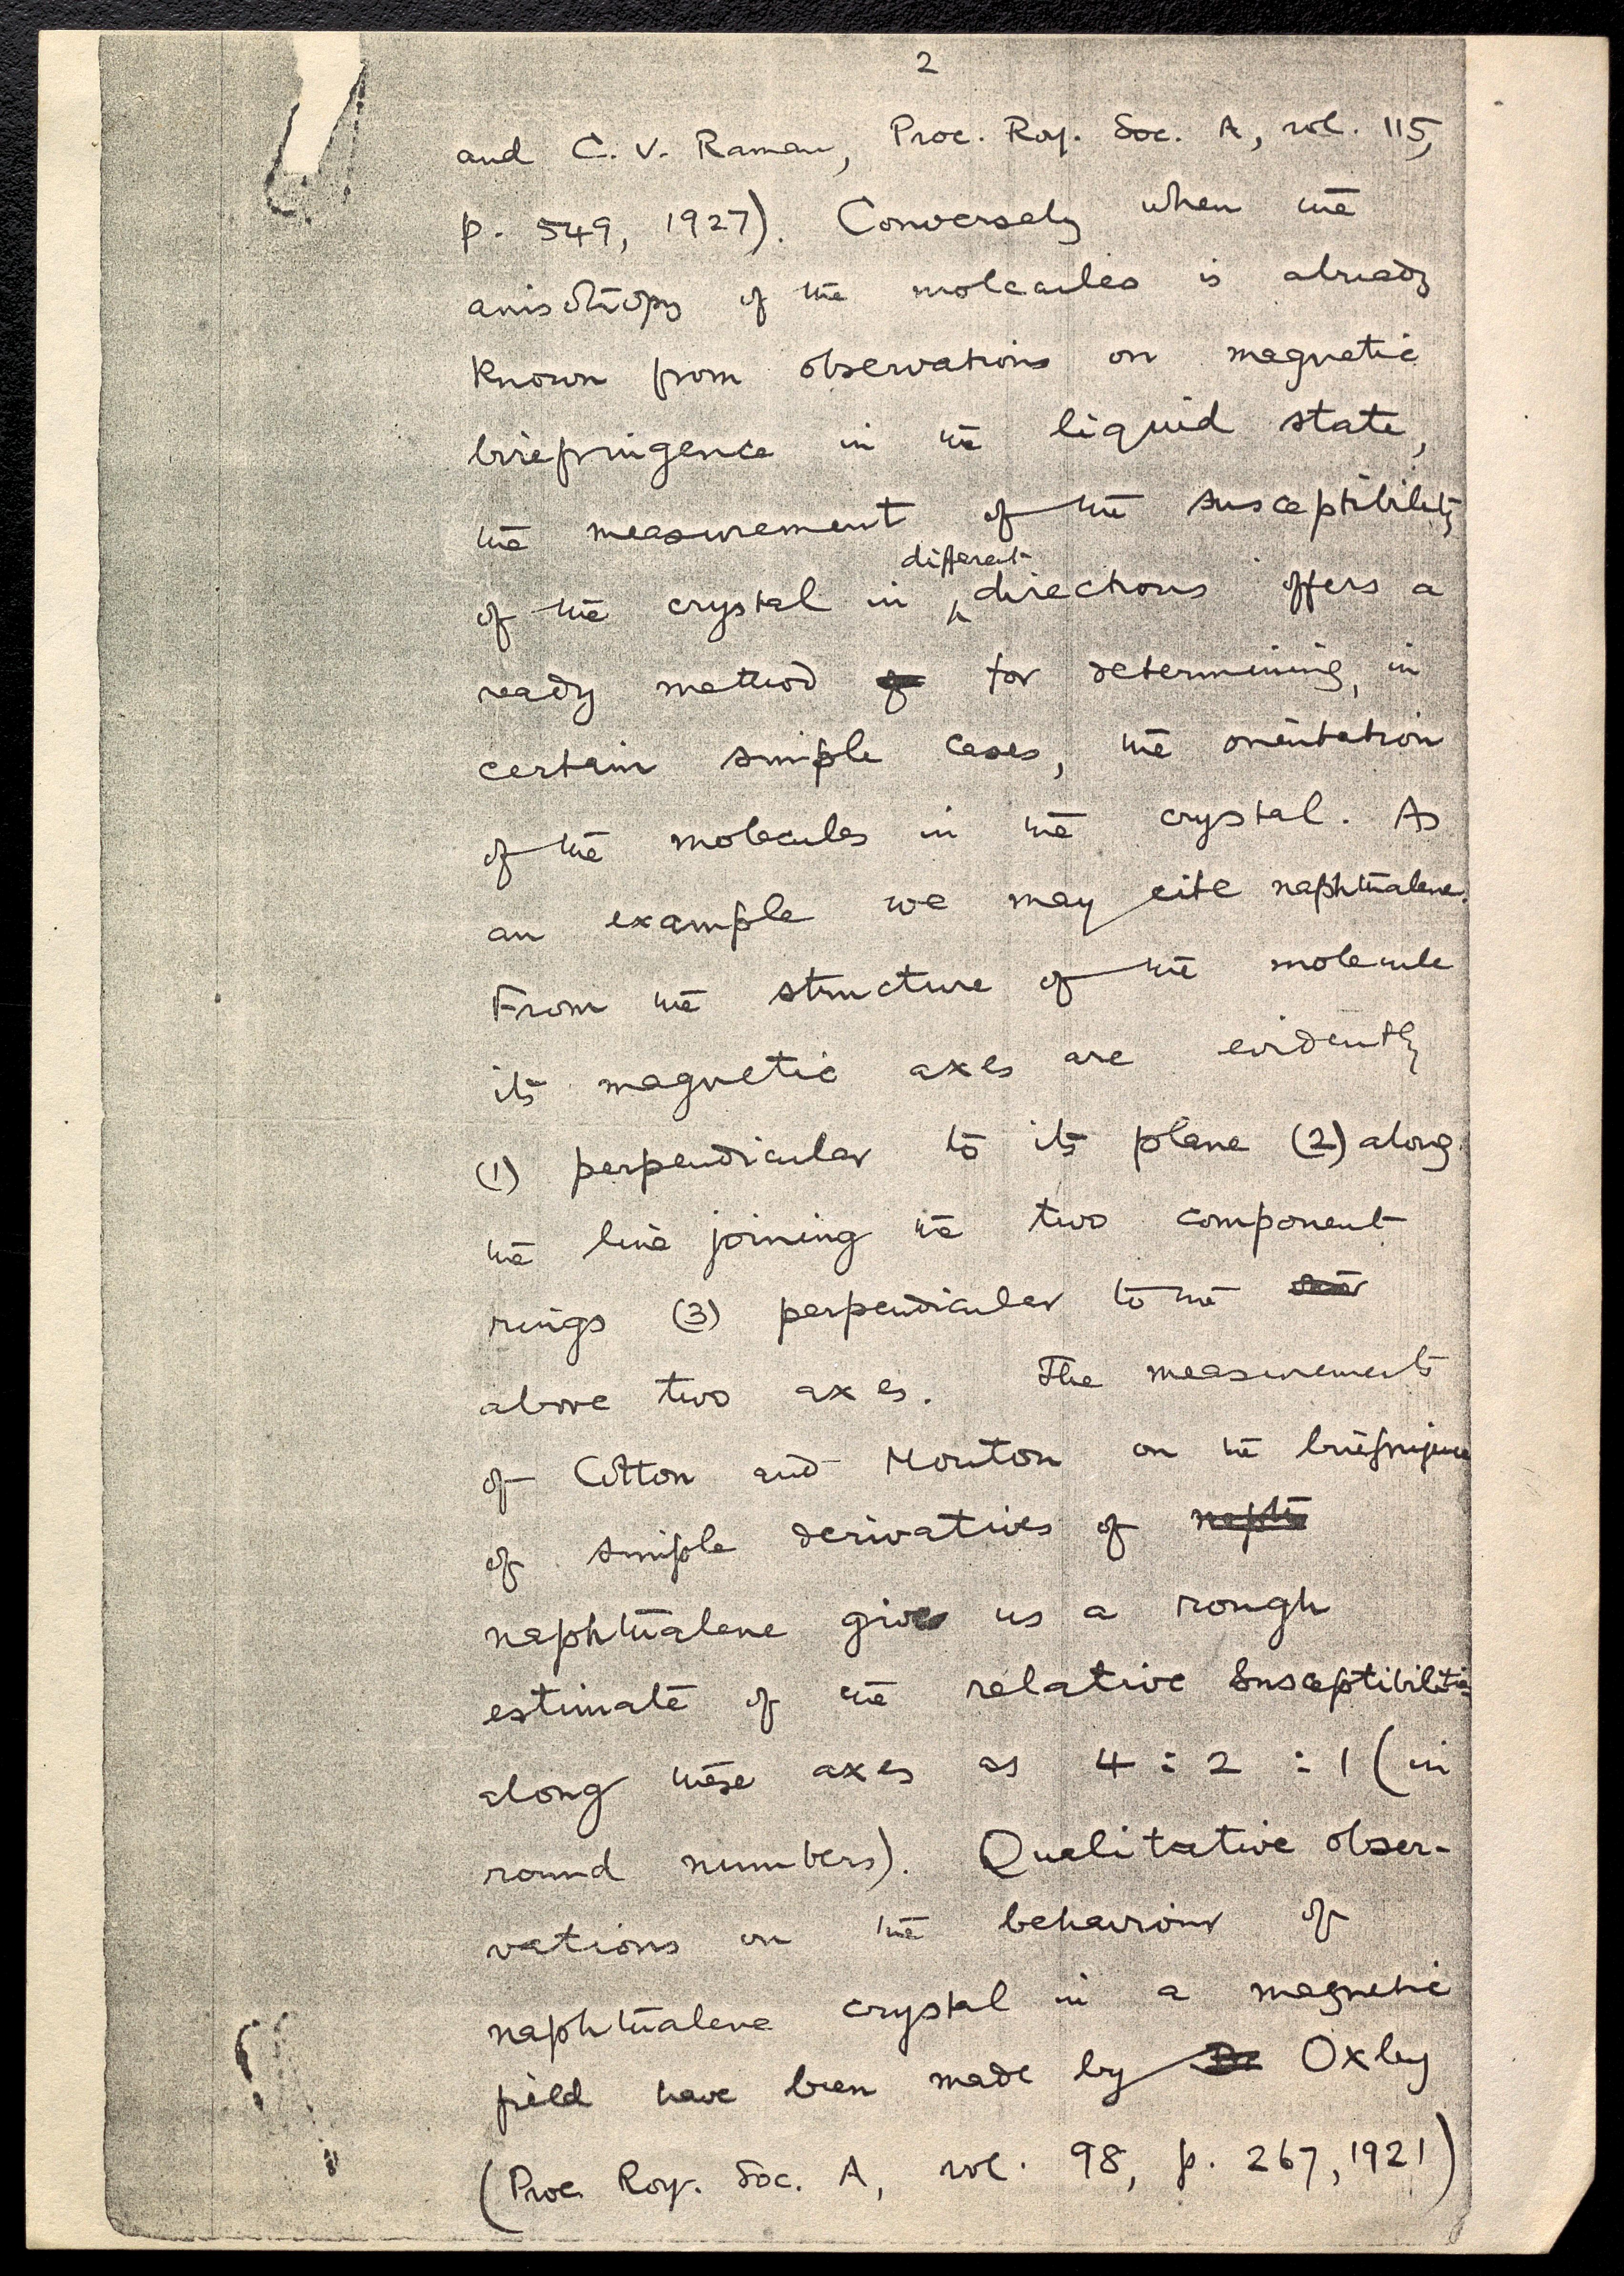 2
and C. V. Raman, Proc. Roy. Soc. A, vol. 115,
p. 549, 1927). Conversely when the
anisotropy of the molecules is already
known from observations on magnetic
birefringence in the liquid state,
the measurement of the susceptibility
different
of the crystal in directions offers a
ready method of for determining, in
certain simple cases, the orientation
of the molecules in the crystal. As
an example we may cite naphthalene.
From the structure of the molecule
its magnetic axes are evidently
(1) perpendicular to its plane (2) along
the line joining the two component
rings (3) perpendicular to the
above two axes. The measurements
of Cotton and Mouton on the birefringence
of simple derivatives of naphth
naphthalene give us a rough
estimate of the relative susceptibilities
along these axes as 4 : 2 : 1 (in
round numbers). Qualitative obser-
vations on the behaviour of
naphthalene crystal in a magnetic
field have been made by Dr Oxley
(Proc. Roy. Soc. A, vol. 98, p. 267, 1921)